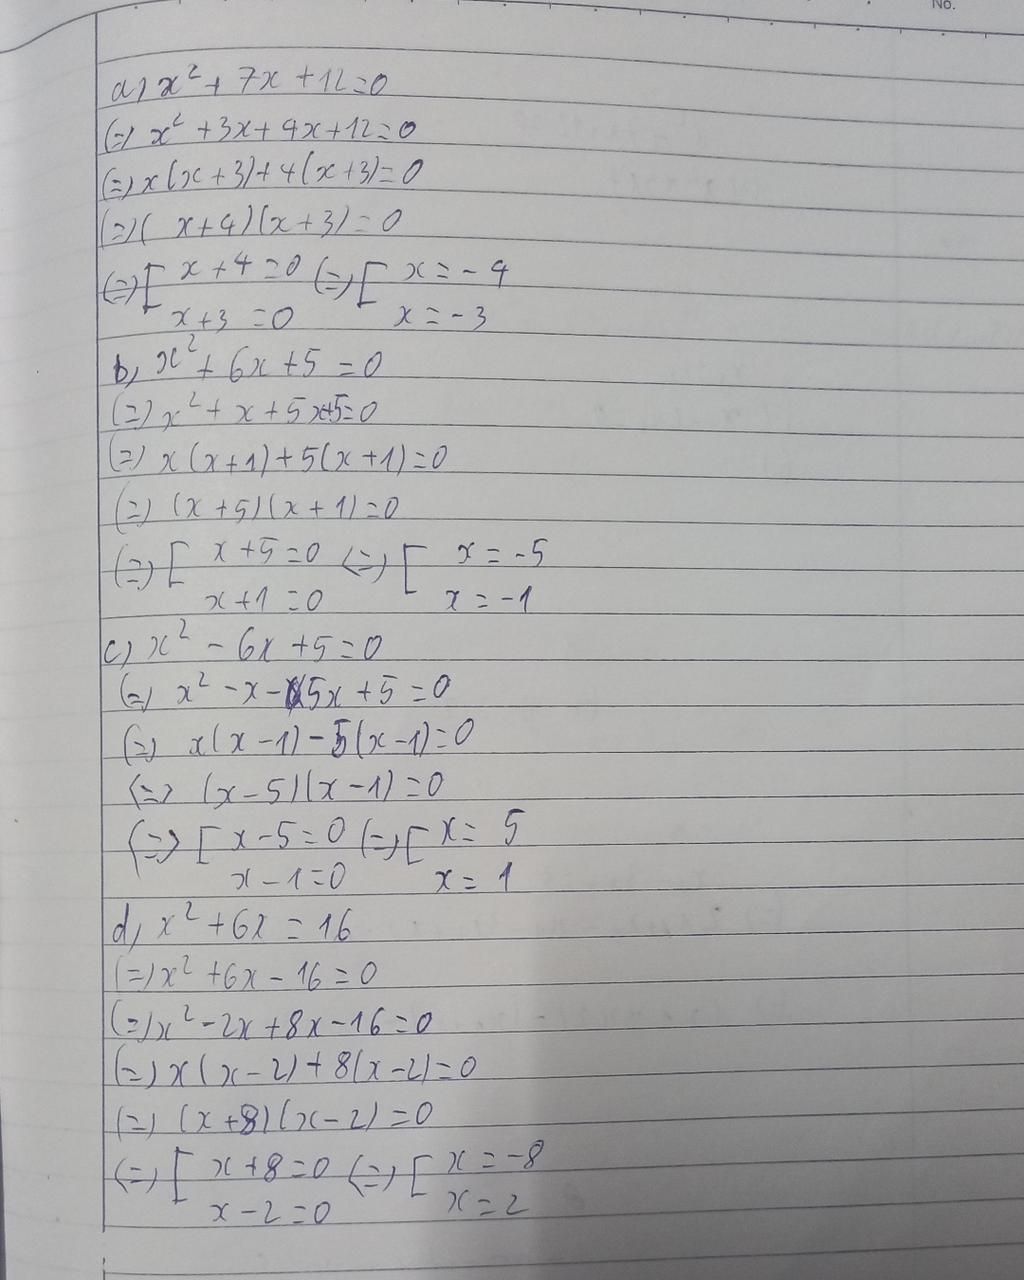 No.
a) x² + 7x + 12 = 0
(=) x² + 3x + 4x + 12 = 0
(=) x(x + 3) + 4(x + 3) = 0
(=) (x + 4)(x + 3) = 0
(=) [ x + 4 = 0 (=) [ x = -4
x + 3 = 0 x = -3
b) x² + 6x + 5 = 0
(=) x² + x + 5x + 5 = 0
(=) x(x + 1) + 5(x + 1) = 0
(=) (x + 5)(x + 1) = 0
(=) [ x + 5 = 0 (=) [ x = -5
x + 1 = 0 x = -1
c) x² - 6x + 5 = 0
(=) x² - x - 5x + 5 = 0
(=) x(x - 1) - 5(x - 1) = 0
(=) (x - 5)(x - 1) = 0
(=) [ x - 5 = 0 (=) [ x = 5
x - 1 = 0 x = 1
d) x² + 6x = 16
(=) x² + 6x - 16 = 0
(=) x² - 2x + 8x - 16 = 0
(=) x(x - 2) + 8(x - 2) = 0
(=) (x + 8)(x - 2) = 0
(=) [ x + 8 = 0 (=) [ x = -8
x - 2 = 0 x = 2